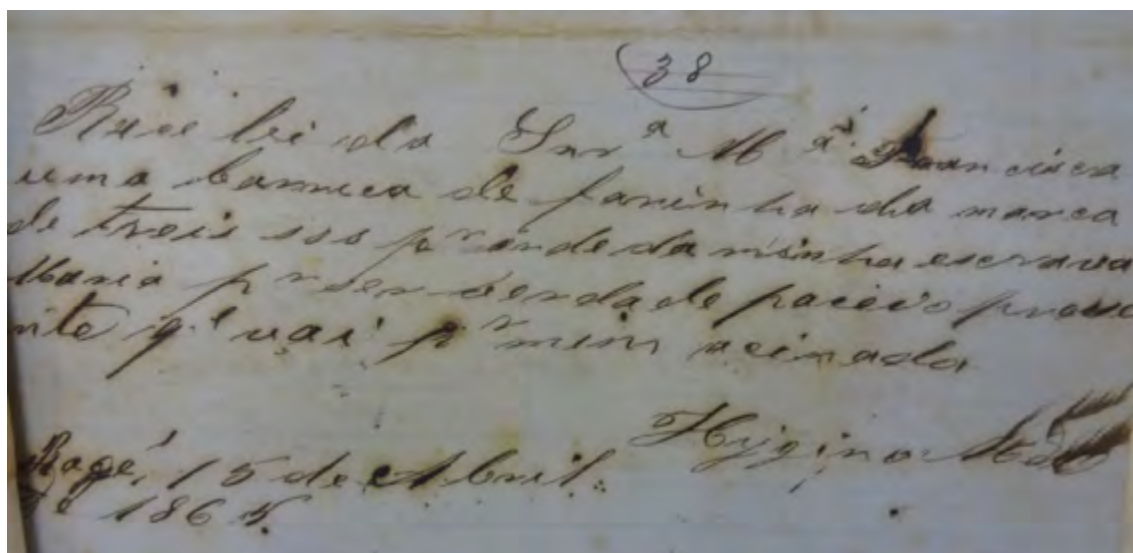 38
Rece bi da Snrª Mª Francisca
uma barrica de farinha da marca
de treis sss pr onde da minha escrava
Maria pr ser verdade paceio preze
nte qe vai pr mim acinado
Bagé, 15 de Abril Hygino
de 1865.